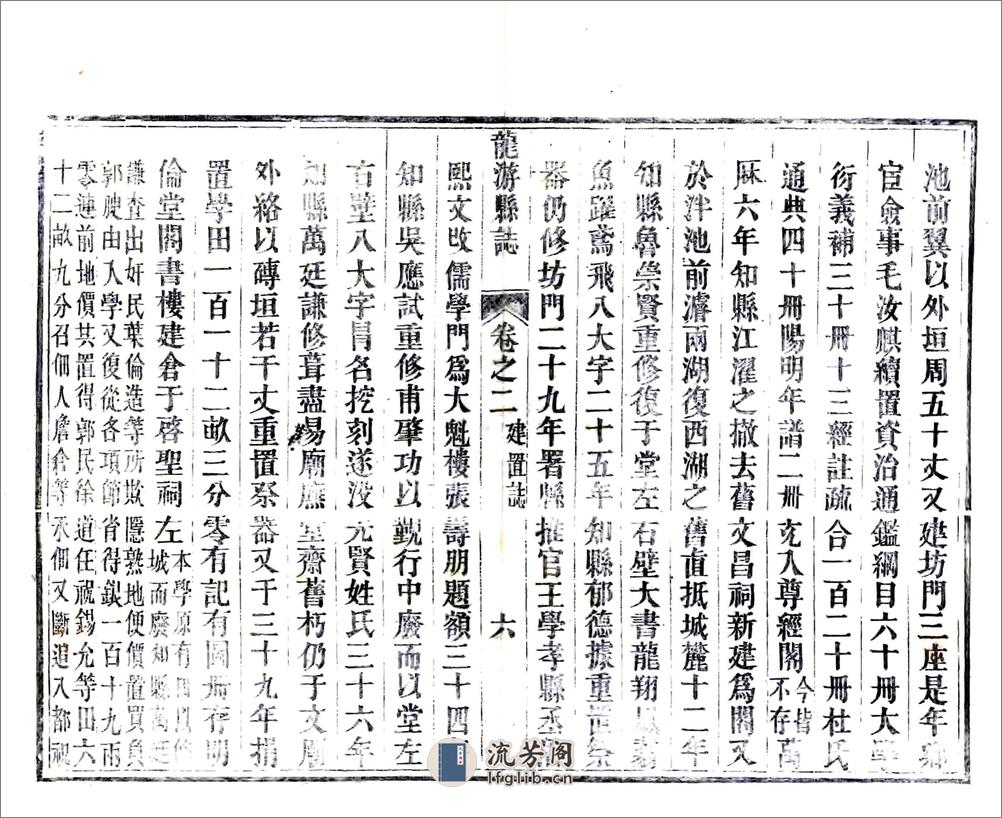 池前翼以外垣周五十丈又建坊門三座是年鄉
宦僉事毛汝麒續置資治通鑑綱目六十冊大學
衍義補三十冊十三經註疏合一百二十冊杜氏
通典四十冊陽明年譜二冊充入尊經閣今皆不存萬
厤六年知縣江濯之撤去舊文昌祠新建爲閣又
於泮池前濬兩湖復西湖之舊直抵城麓十二年
知縣魯崇賢重修復于堂左右壁大書龍翔鳳翥
魚躍鳶飛八大字二十五年知縣郁德據重造祭
器仍修坊門二十九年署縣推官王學孝縣丞
龍游縣誌 卷之二 建置誌 六
熙文改儒學門爲大魁樓張壽朋題額三十四
知縣吳應試重修甫肇功以覲行中廢而以堂左
右壁八大字冐名挖刻遂没元賢姓氏三十六年
知縣萬廷謙修葺盡易廟廡堂齋舊朽仍于文廟
外絡以磚垣若干丈重置祭器又于三十九年捐
置學田一百一十二畝三分零有記有圖冊存明
倫堂閣書樓建倉于啓聖祠左本學原有四以修
城而廢知縣萬廷
謙查出奸民葉倫造等所欺隱熟地便價置買負
郭腴由入學又復從各項節省得銀一百十九兩
零連前地價共置得郭民徐道任祝錫允等田六
十二畝九分召佃人詹倉等承佃又斷追入都祝
流芳阁
lfglib.cn